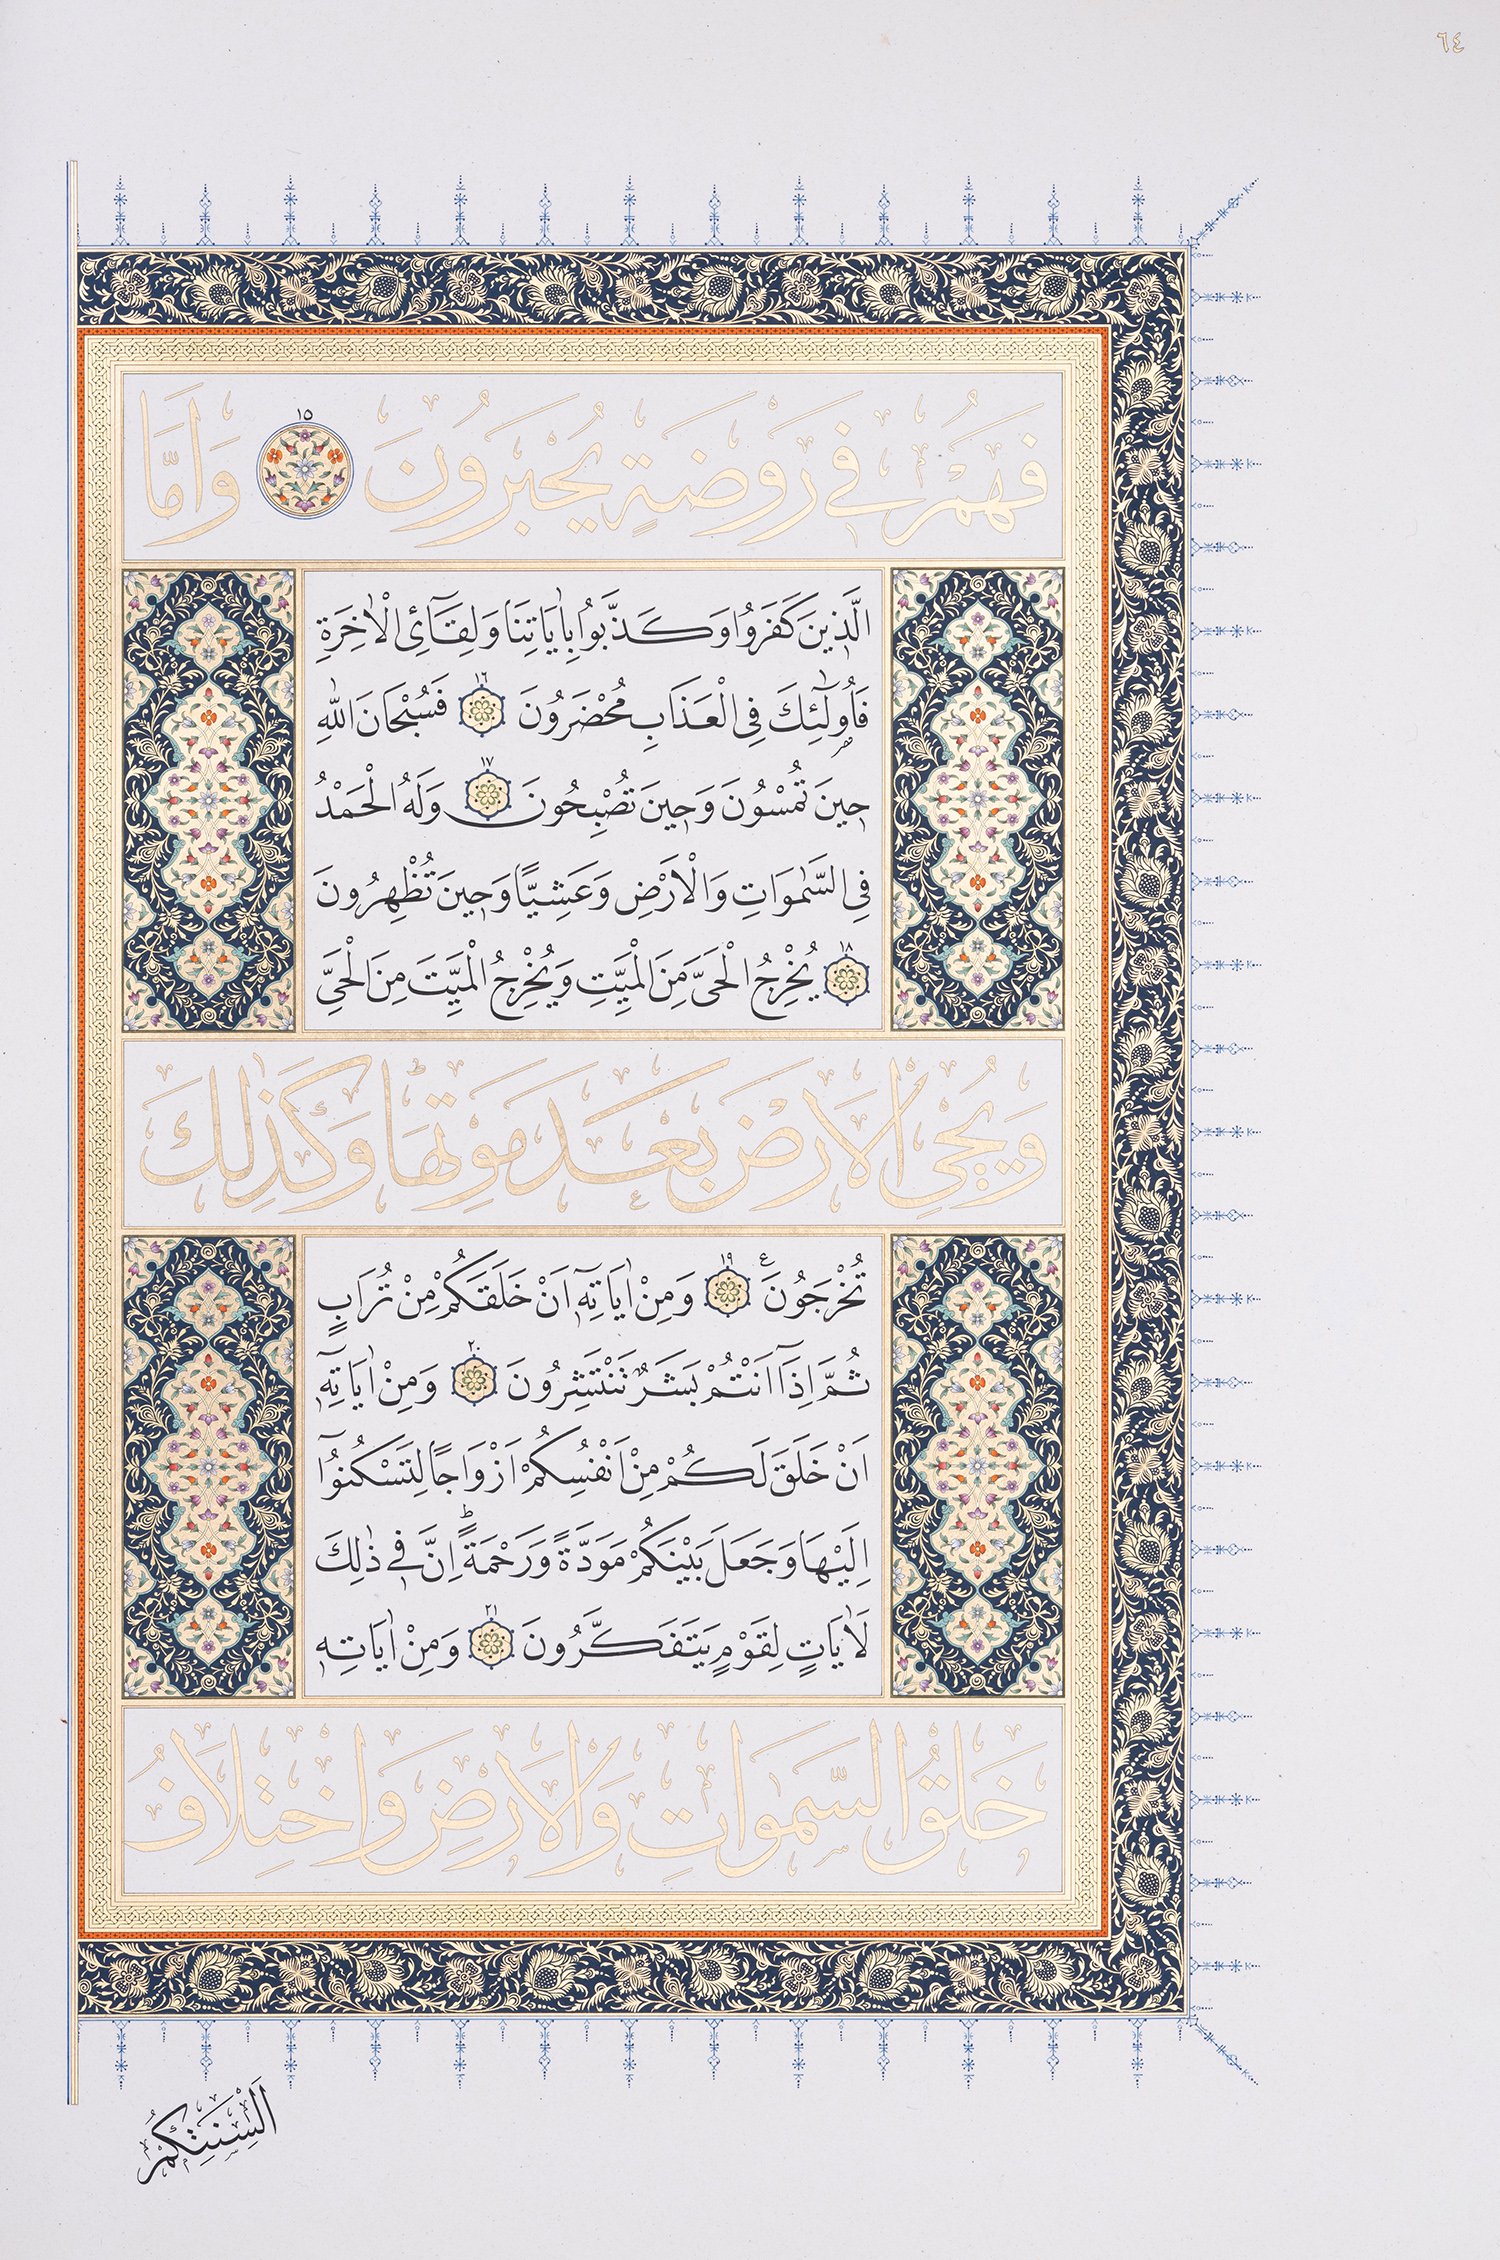 ٦٤
فَهُمْ فِي رَوْضَةٍ يُحْبَرُونَ ١٥ وَاَمَّا
الَّذِينَ كَفَرُوا وَكَذَّبُوا بِاٰيَاتِنَا وَلِقَٓائِ الْاٰخِرَةِ
فَاُو۬لٰٓئِكَ فِي الْعَذَابِ مُحْضَرُونَ ١٦ فَسُبْحَانَ اللّٰهِ
حِينَ تُمْسُونَ وَحِينَ تُصْبِحُونَ ١٧ وَلَهُ الْحَمْدُ
فِي السَّمٰوَاتِ وَالْاَرْضِ وَعَشِيًّا وَحِينَ تُظْهِرُونَ
١٨ يُخْرِجُ الْحَيَّ مِنَ الْمَيِّتِ وَيُخْرِجُ الْمَيِّتَ مِنَ الْحَيِّ
وَيُحْيِي الْاَرْضَ بَعْدَ مَوْتِهَاۜ وَكَذٰلِكَ
تُخْرَجُونَ ١٩ وَمِنْ اٰيَاتِهِٓ اَنْ خَلَقَكُمْ مِنْ تُرَابٍ
ثُمَّ اِذَٓا اَنْتُمْ بَشَرٌ تَنْتَشِرُونَ ٢٠ وَمِنْ اٰيَاتِهِٓ
اَنْ خَلَقَ لَكُمْ مِنْ اَنْفُسِكُمْ اَزْوَاجًا لِتَسْكُنُٓوا
اِلَيْهَا وَجَعَلَ بَيْنَكُمْ مَوَدَّةً وَرَحْمَةًۜ اِنَّ فِي ذٰلِكَ
لَاٰيَاتٍ لِقَوْمٍ يَتَفَكَّرُونَ ٢١ وَمِنْ اٰيَاتِهِ
خَلْقُ السَّمٰوَاتِ وَالْاَرْضِ وَاخْتِلَافُ
اَلْسِنَتِكُمْ